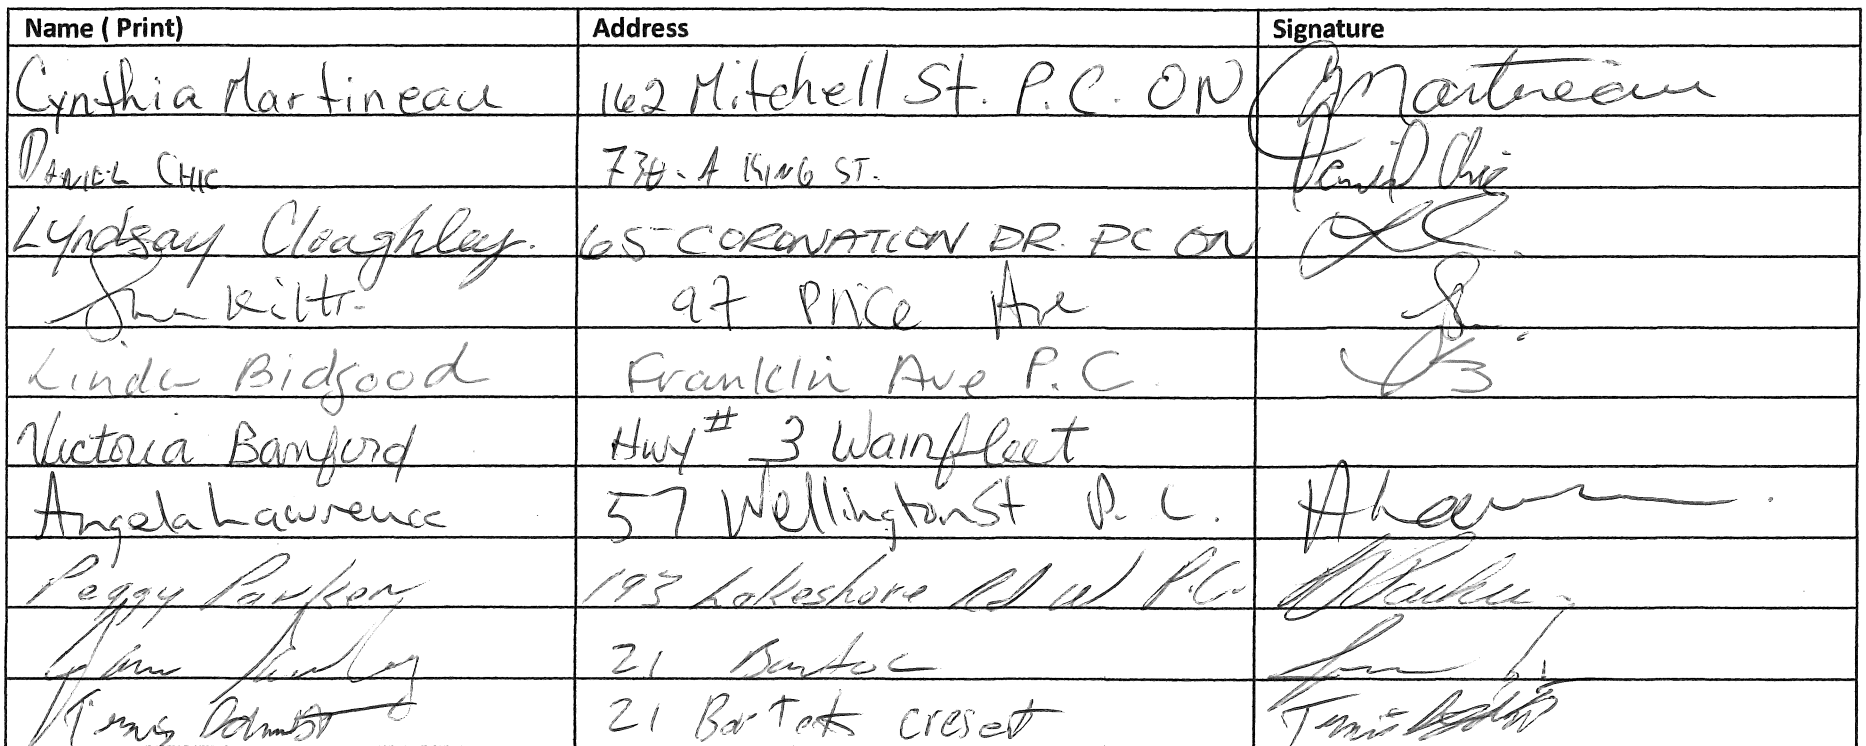 Name ( Print) Address Signature
Cynthia Martineau 162 Mitchell St. P.C. ON CMartineau
DANIEL CHIC 738-A KING ST. Daniel Chic
Lyndsay Cloaghley. 65 CORONATION DR. PC ON LC
97 Price Ave
Linda Bidgood Franklin Ave P.C.
Victoria Bamford Hwy # 3 Wainfleet
Angela Lawrence 57 Wellington St P.C.
Peggy Parker 193 Lakeshore Rd W P.C. PParker
21
21 creset